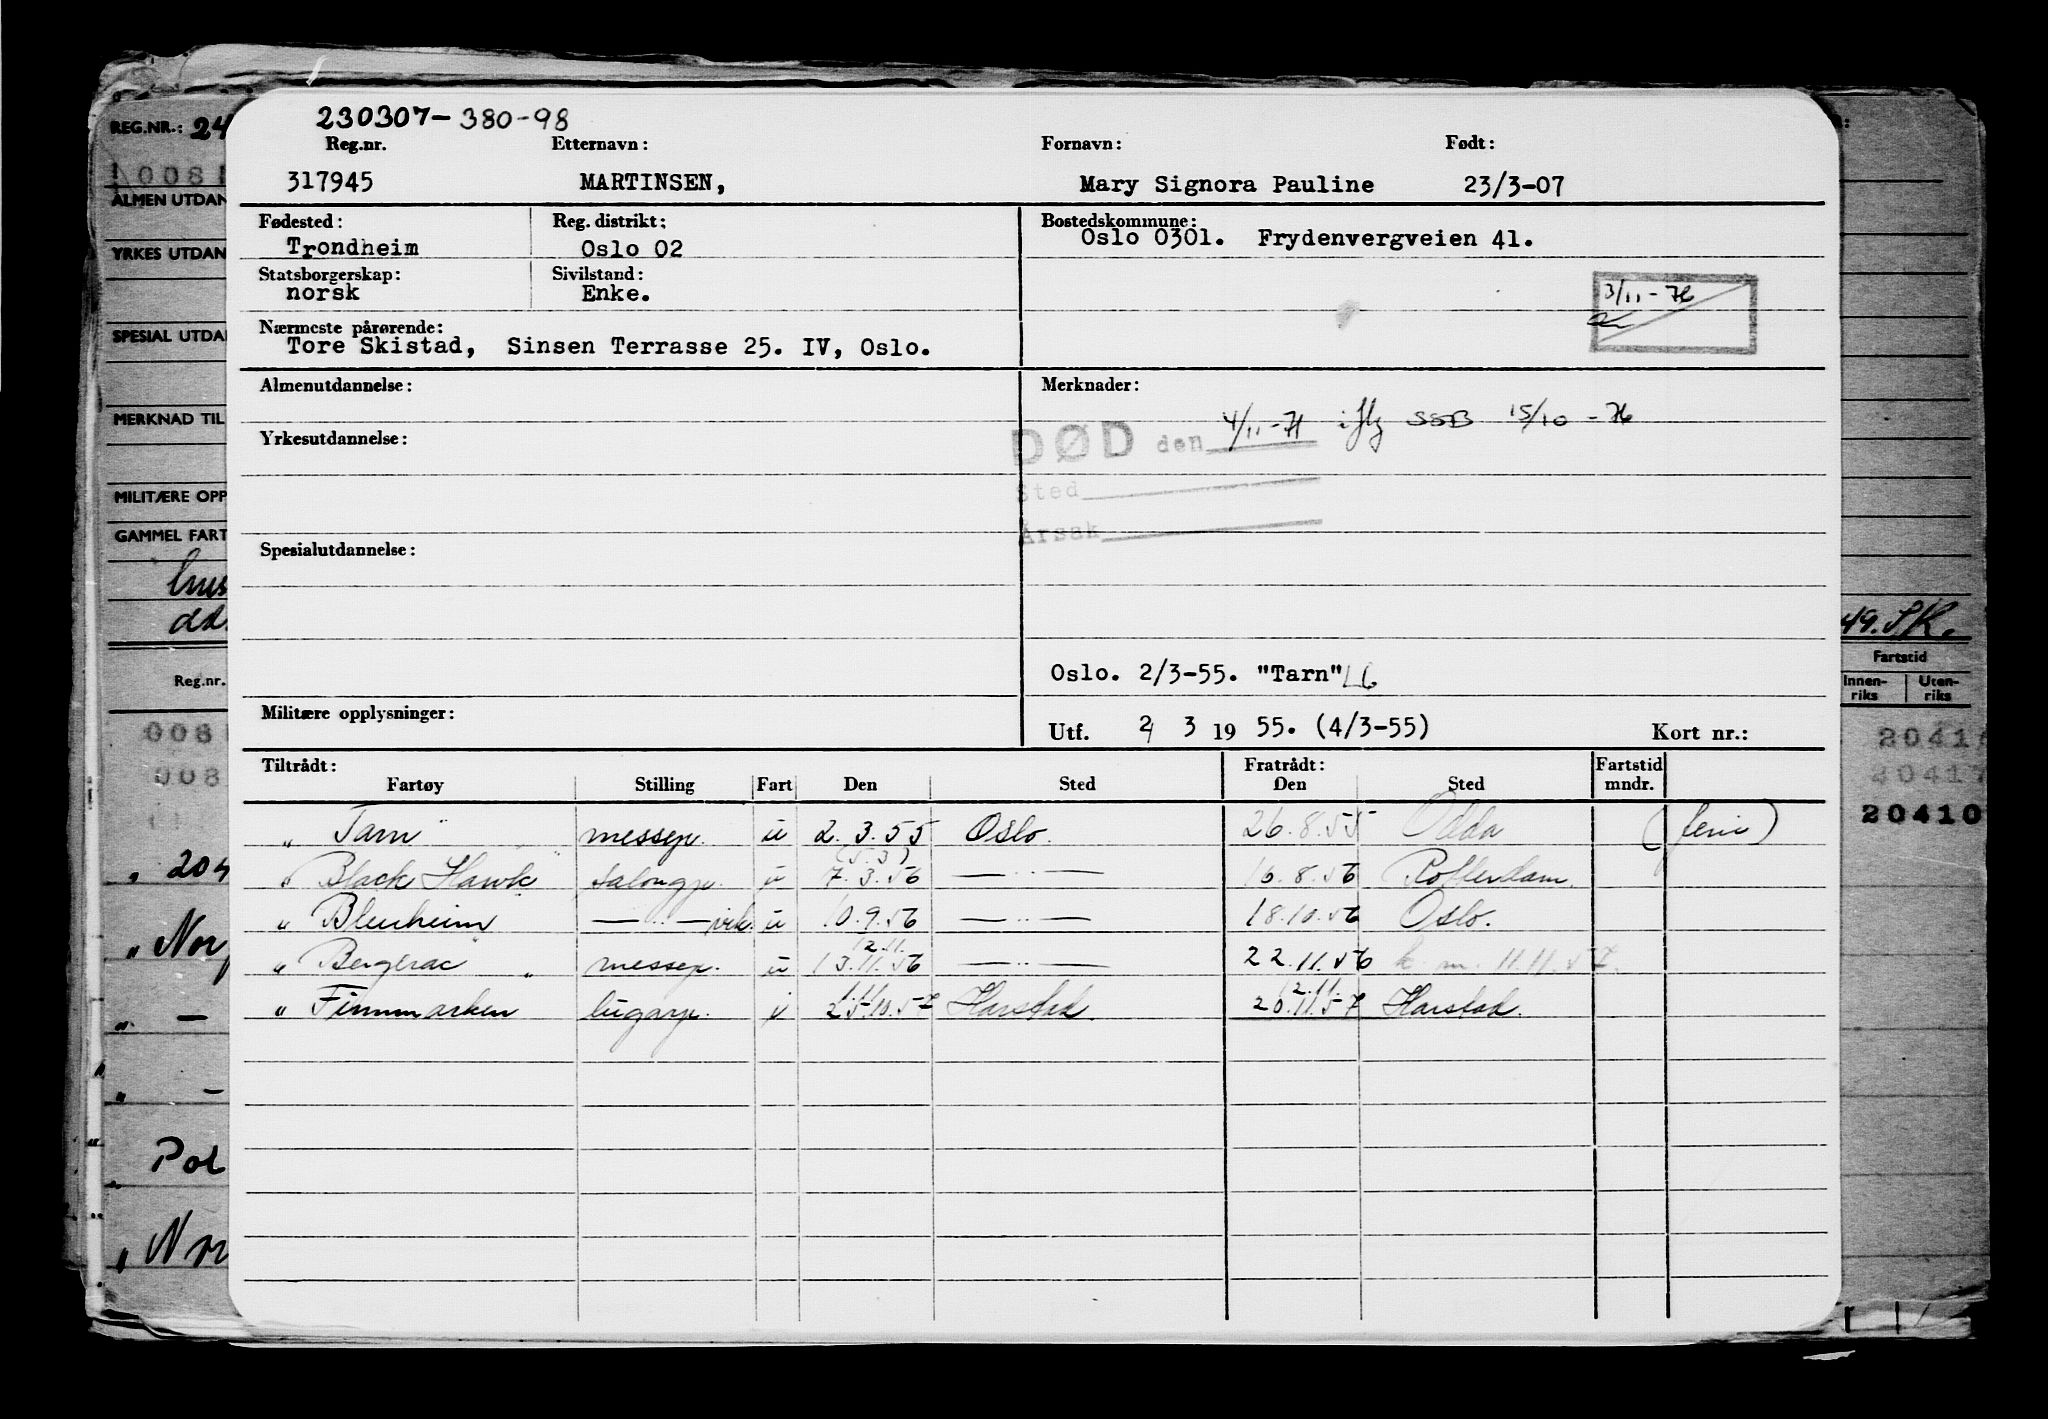 230307-380-98
Reg.nr. Etternavn: Fornavn: Født:
317945 MARTINSEN, Mary Signora Pauline 23/3-07
Fødested: Reg. distrikt: Bostedskommune:
Trondheim Oslo 02 Oslo 0301. Frydenvergveien 41.
Statsborgerskap: Sivilstand:
norsk Enke.
3/11-76
Nærmeste pårørende:
Tore Skistad, Sinsen Terrasse 25. IV, Oslo.
Almenutdannelse: Merknader:
DØD den 4/11-71 iflg SSB 15/10-76
Yrkesutdannelse:
Sted
Årsak
Spesialutdannelse:
Oslo. 2/3-55. "Tarn"
Militære opplysninger:
Utf. 2/ 3 19 55. (4/3-55) Kort nr.:
Tiltrådt: Fratrådt: Fartstid
Fartøy Stilling Fart Den Sted Den Sted mndr.
" Tarn " messep. u 2.3.55 Oslo. 26.8.55 Odda (ferie)
(5.3)
" Black Hawk " salongp. u 7.3.56 — " — 16.8.56 Rotterdam.
" Blenheim — " — vik. u 10.9.56 — " — 18.10.56 Oslo.
12.11.
" Bergerac " messep. u 13.11.56 — " — 22.11.56 k. m. 11.11.57.
1.11 12.11.
" Finnmarken lugarp. i 25.10.57 Harstad. 20.11.57 Harstad.
REG.NR.: 24
0081
ALMEN UTDAN
YRKES UTDAN
SPESIAL UTDA
MERKNAD TIL
MILITÆRE OPP
GAMMEL FART
dd.
Reg.nr.
008
008
" 204
" Nor
" —
" —
Pol
" Nor
49. SK.
Fartstid
Innen-riks Uten-riks
2041
20417
20410